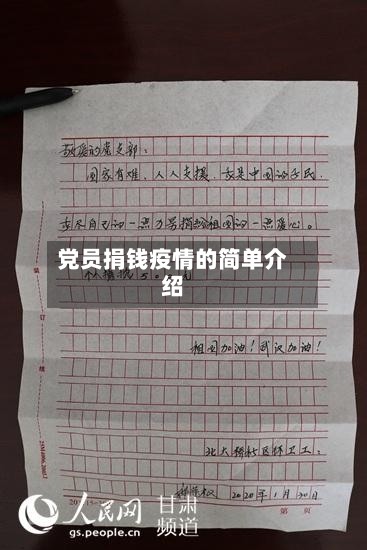 敬爱的党支部：
国家有难，人人支援，我是中国的子民，
去尽自己的一点力另捐给祖国的一点爱心。
党员捐钱疫情的简单介
绍
祖国加油！武汉加油！
北大桥社区环卫工：
2020年1月30日
装
订
线
第 页
人民网 甘肃
频道
gs.people.cn